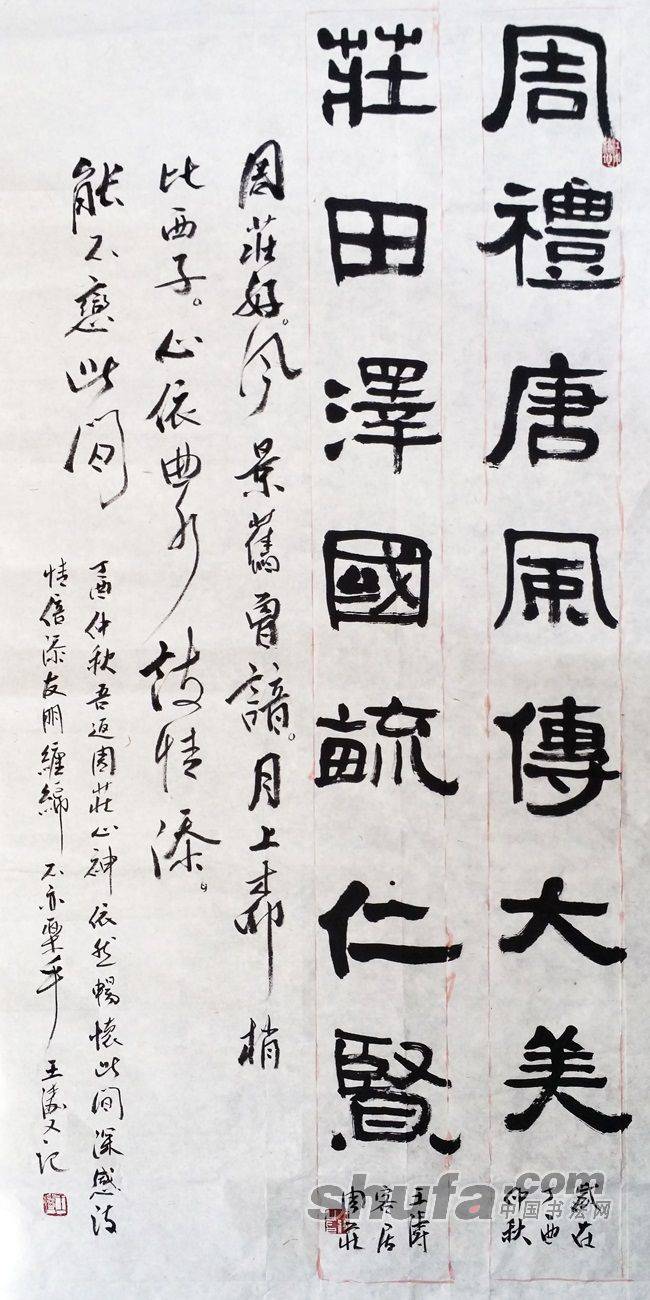 周禮唐風傳大美
歲在
丁酉
仲秋
莊田澤國毓仁賢
王濤
客居
周莊
周莊好。風景舊曾諳。月上柳梢
比西子。心依曲水詩情添。
能不戀此間
丁酉仲秋吾返周莊心神依然暢懷此間深感詩
情倍添友朋纏綿不亦樂乎 王濤又記
shufa.com
中国书法网